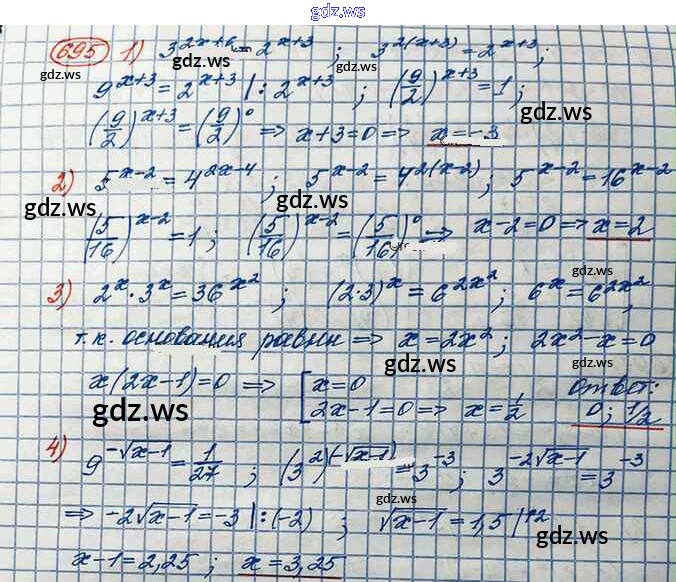 gdz.ws
695 1) 3^{2x+6} = 2^{x+3} ; 3^{2(x+3)} = 2^{x+3} ;
gdz.ws
9^{x+3} = 2^{x+3} | : 2^{x+3} ; (9/2)^{x+3} = 1 ;
gdz.ws gdz.ws
(9/2)^{x+3} = (9/2)^0 => x+3=0 => x=-3
2) 5^{x-2} = 4^{2x-4} ; 5^{x-2} = 4^{2(x-2)} ; 5^{x-2} = 16^{x-2}
gdz.ws gdz.ws
(5/16)^{x-2} = 1 ; (5/16)^{x-2} = (5/16)^0 => x-2=0 => x=2
gdz.ws
3) 2^x · 3^x = 36^{x^2} ; (2·3)^x = 6^{2x^2} ; 6^x = 6^{2x^2} ;
т.к. основания равны => x=2x^2 ; 2x^2-x=0
gdz.ws
x(2x-1)=0 => [ x=0 ответ:
gdz.ws
2x-1=0 => x=1/2 0; 1/2
4) 9^{-√x-1} = 1/27 ; (3^2)^{(-√x-1)} = 3^{-3} ; 3^{-2√x-1} = 3^{-3}
gdz.ws gdz.ws
=> -2√x-1 = -3 | : (-2) ; √x-1 = 1,5 |↑2
gdz.ws
x-1=2,25 ; x=3,25